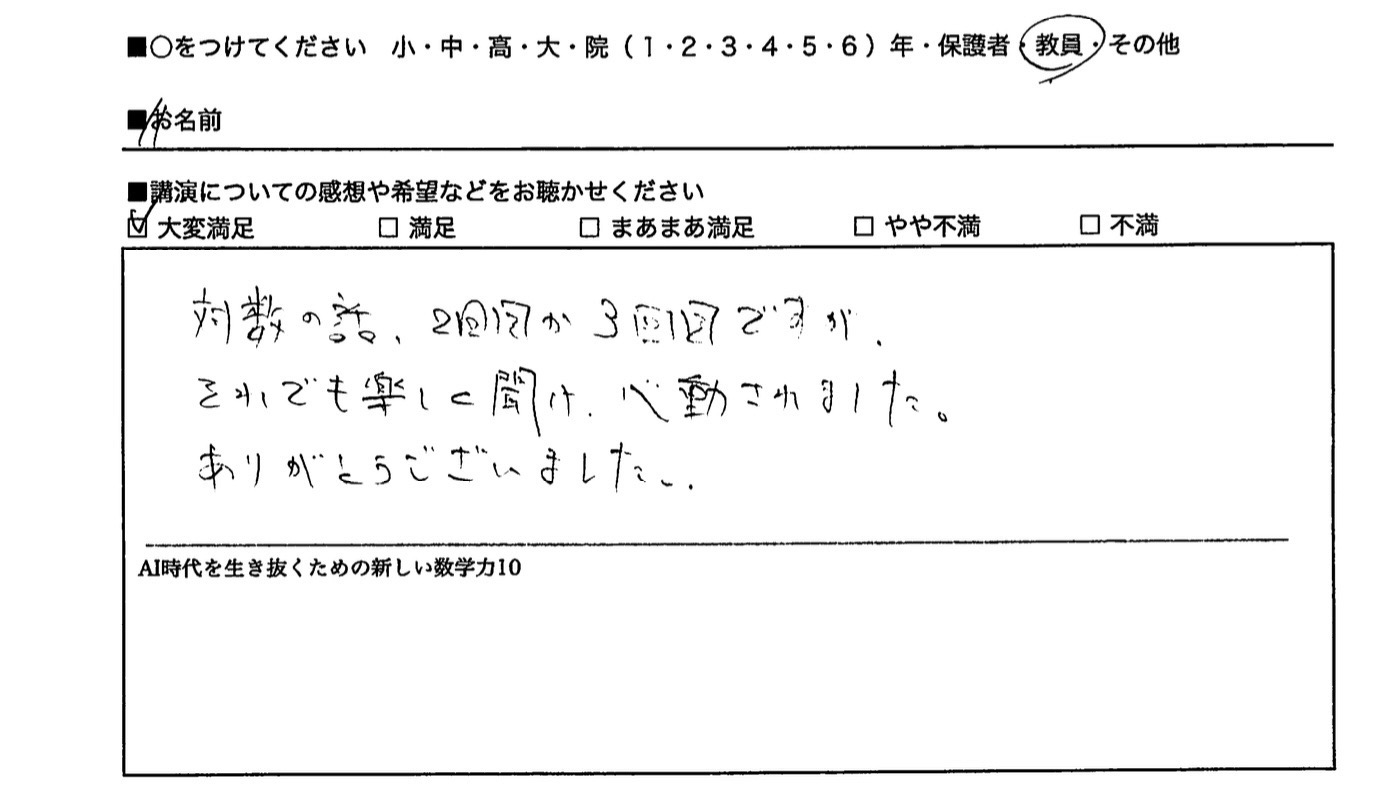 ■○をつけてください 小・中・高・大・院（1・2・3・4・5・6）年・保護者・教員・その他
■お名前
■講演についての感想や希望などをお聴かせください
☑大変満足 □満足 □まあまあ満足 □やや不満 □不満
対数の話、2回目か3回目ですが、
それでも楽しく聞け、心動されました。
ありがとうございました。
AI時代を生き抜くための新しい数学力10